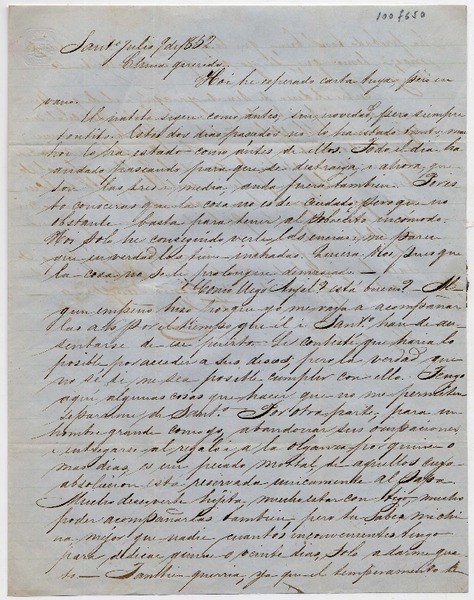 100 f 650
Sant.o Julio 9 de 1852
Elmira querida:
Hoi he esperado carta tuya pero en
vano.
El ñatito sigue como ántes, sin novedad, pero siempre
tontito. Estos dos dias pasados no lo ha estado tanto, mas
hoi lo ha estado como antes de ellos. Todo el dia ha
andado paseando para que se distraiga, i ahora que
son las tres i media, anda fuera tambien. Por es-
to conoceras que la cosa no es de cuidado, pero que no
obstante basta para tener al pobrecito incomodo.
Hoi solo he conseguido verle las encias, i me pare-
ce en verdad las tiene hinchadas. Quiera Dios pues que
la cosa no se le prolongue demasiado —
¿Como llegó Anjel? ¿Está bueno? Al-
gun empeño hizo porque yo me vaya a acompañar
las a Vp por el tiempo que él i Sant.o han de au-
sentarse de ese puerto. Le contesté que haria lo
posible por acceder a sus deseos, pero la verdad que
no sé si me sea posible cumplir con ello. Tengo
aqui algunas cosas que hacer que no me permiten
separarme de Sant.o Por otra parte, para un
hombre grande como yo, abandonar sus ocupaciones
i entregarse al regalo i a la olganza por quince o
mas dias, es un pecado mortal, de aquellos cuya
absolucion esta reservada unicamente al Papa.
Mucho deseo verte hijita, mucho estar con Vp i mucho
poder acompañarlas tambien, pero tu sabes, mi chi-
na, mejor que nadie cuantos inconvenientes tengo
para dedicar quince o veinte dias, solo a darme gus-
to — Tambien querria yo que el temperamento te